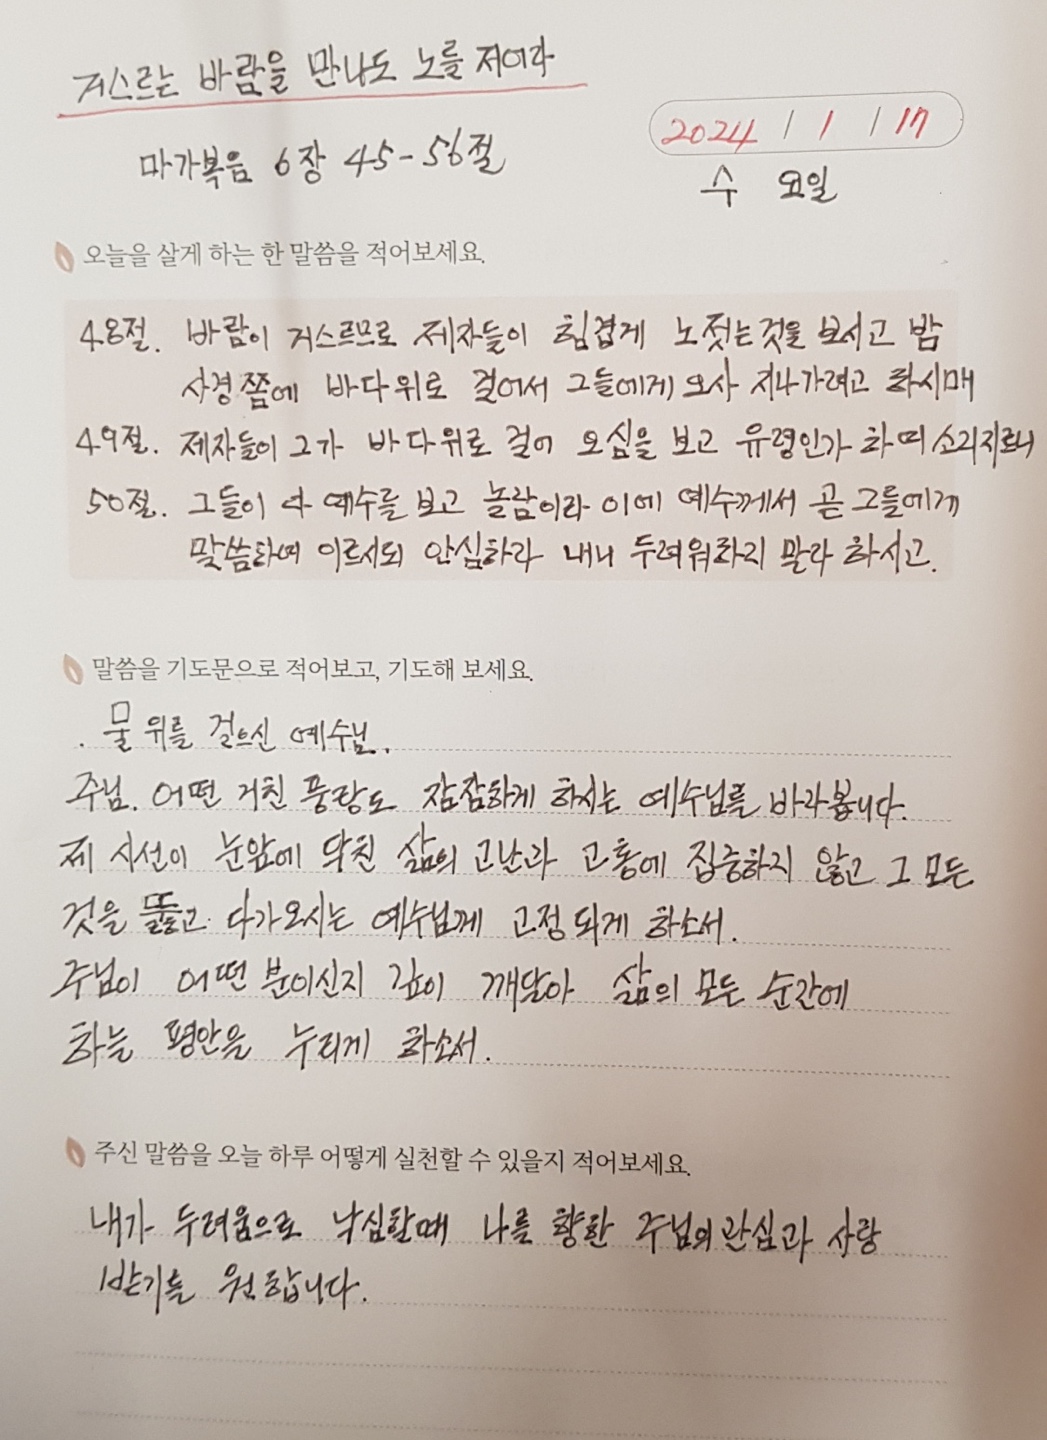 거스르는 바람을 만나도 노를 저어라
2024 / 1 / 17
마가복음 6장 45-56절
수 요일
오늘을 살게 하는 한 말씀을 적어보세요.
48절. 바람이 거스르므로 제자들이 힘겹게 노젓는것을 보시고 밤
사경쯤에 바다위로 걸어서 그들에게 오사 지나가려고 하시매
49절. 제자들이 그가 바다위로 걸어 오심을 보고 유령인가 하며 소리지르니
50절. 그들이 다 예수를 보고 놀람이라 이에 예수께서 곧 그들에게
말씀하여 이르시되 안심하라 내니 두려워하지 말라 하시고.
말씀을 기도문으로 적어보고, 기도해 보세요.
. 물 위를 걸으신 예수님.
주님. 어떤 거친 풍랑도 잠잠하게 하시는 예수님를 바라봅니다.
제 시선이 눈앞에 닥친 삶의 고난과 고통에 집중하지 않고 그 모든
것을 뚫고 다가오시는 예수님께 고정 되게 하소서.
주님이 어떤 분이신지 깊이 깨달아 삶의 모든 순간에
하늘 평안을 누리게 하소서.
주신 말씀을 오늘 하루 어떻게 실천할 수 있을지 적어보세요.
내가 두려움으로 낙심할때 나를 향한 주님의 관심과 사랑
받기를 원합니다.